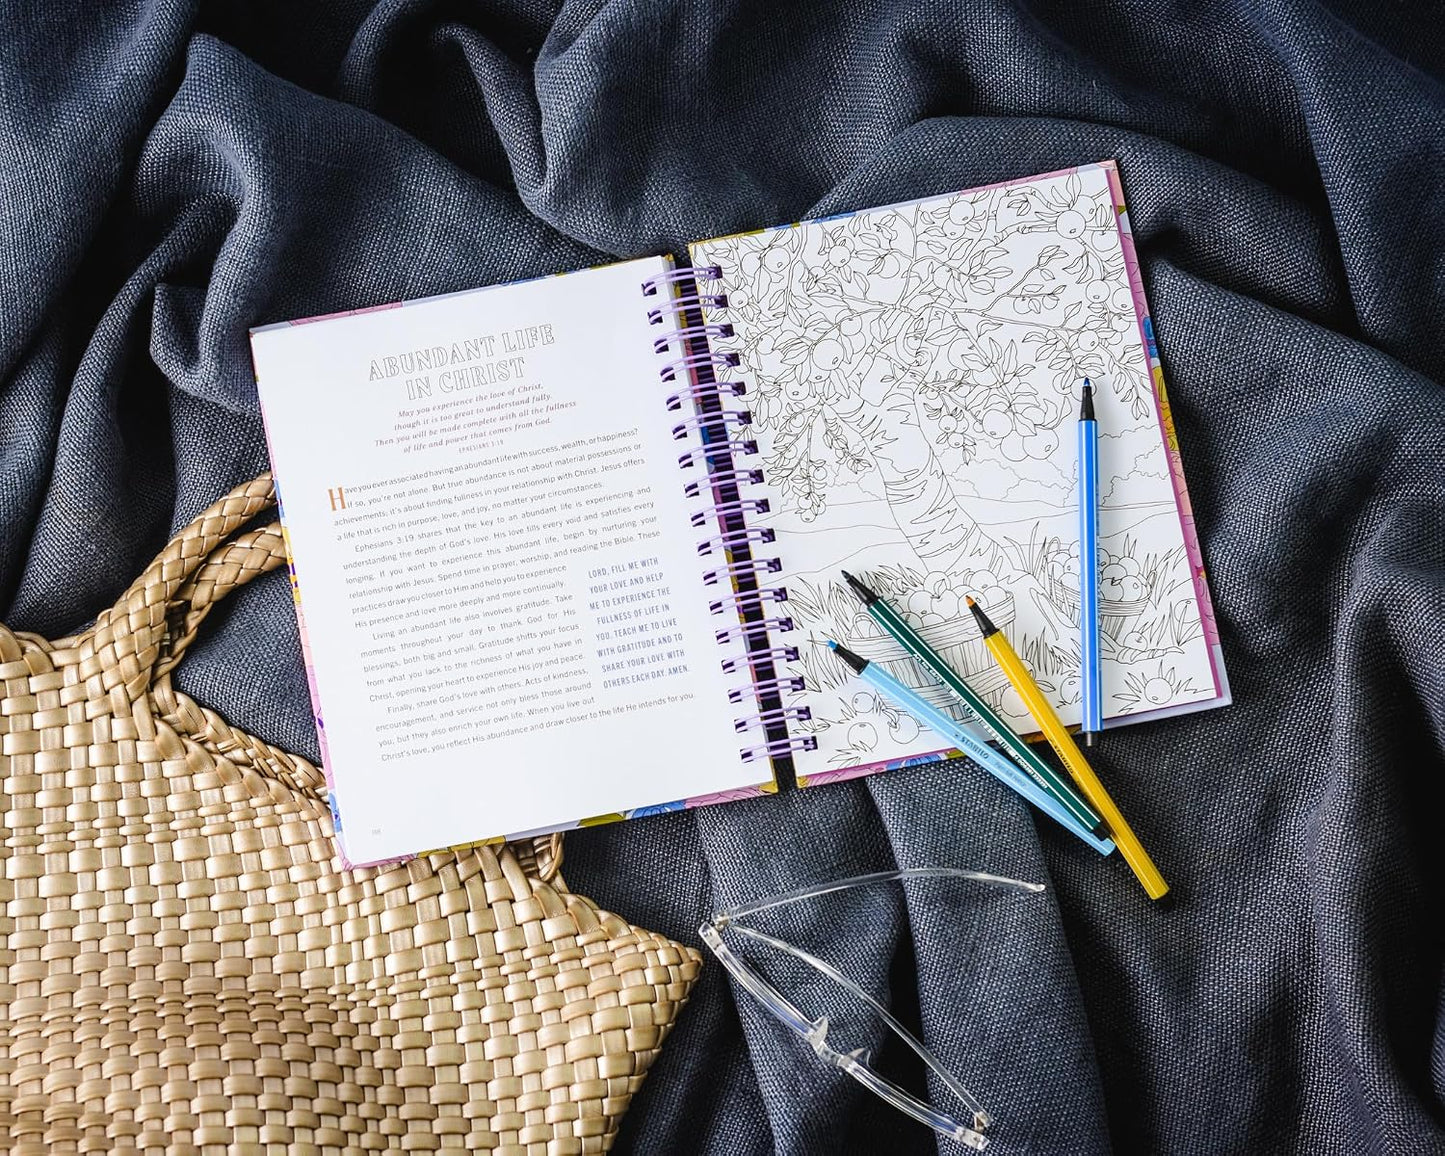 ABUNDANT LIFE
IN CHRIST
May you experience the love of Christ,
though it is too great to understand fully.
Then you will be made complete with all the fullness
of life and power that comes from God.
EPHESIANS 3:19
Have you ever associated having an abundant life with success, wealth, or happiness?
If so, you're not alone. But true abundance is not about material possessions or
achievements; it's about finding fullness in your relationship with Christ. Jesus offers
a life that is rich in purpose, love, and joy, no matter your circumstances.
Ephesians 3:19 shares that the key to an abundant life is experiencing and
understanding the depth of God's love. His love fills every void and satisfies every
longing. If you want to experience this abundant life, begin by nurturing your
relationship with Jesus. Spend time in prayer, worship, and reading the Bible. These
practices draw you closer to Him and help you to experience
His presence and love more deeply and more continually.
Living an abundant life also involves gratitude. Take
moments throughout your day to thank God for His
blessings, both big and small. Gratitude shifts your focus
from what you lack to the richness of what you have in
Christ, opening your heart to experience His joy and peace.
Finally, share God's love with others. Acts of kindness,
encouragement, and service not only bless those around
you, but they also enrich your own life. When you live out
Christ's love, you reflect His abundance and draw closer to the life He intends for you.
LORD, FILL ME WITH
YOUR LOVE AND HELP
ME TO EXPERIENCE THE
FULLNESS OF LIFE IN
YOU. TEACH ME TO LIVE
WITH GRATITUDE AND TO
SHARE YOUR LOVE WITH
OTHERS EACH DAY. AMEN.
STABILO